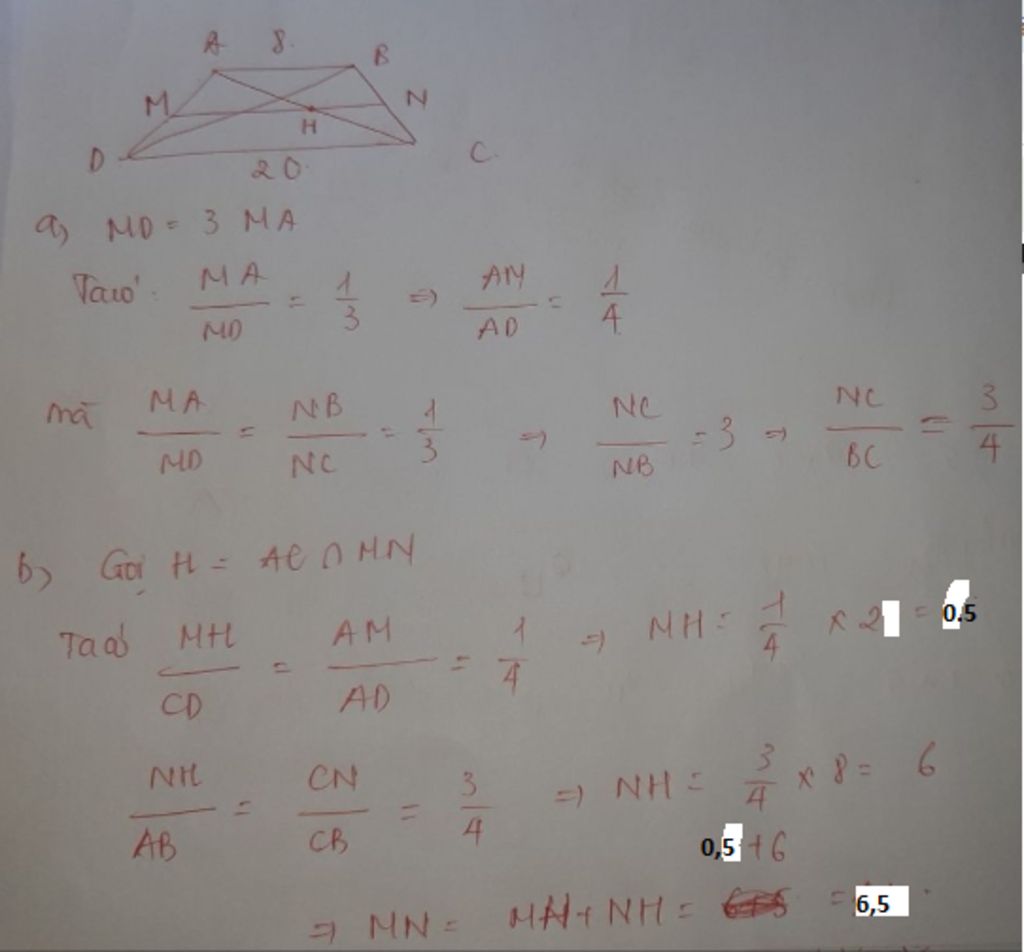 A 8. B
M N
H
D 20. C.
a) MD = 3 MA
Ta có: MA/MD = 1/3 => AM/AD = 1/4
mà MA/MD = NB/NC = 1/3 => NC/NB = 3 => NC/BC = 3/4
b) Gọi H = AC ∩ MN
Ta có MH/CD = AM/AD = 1/4 => MH = 1/4 x 2 = 0.5
NH/AB = CN/CB = 3/4 => NH = 3/4 x 8 = 6
0,5 + 6
=> MN = MH + NH = = 6,5